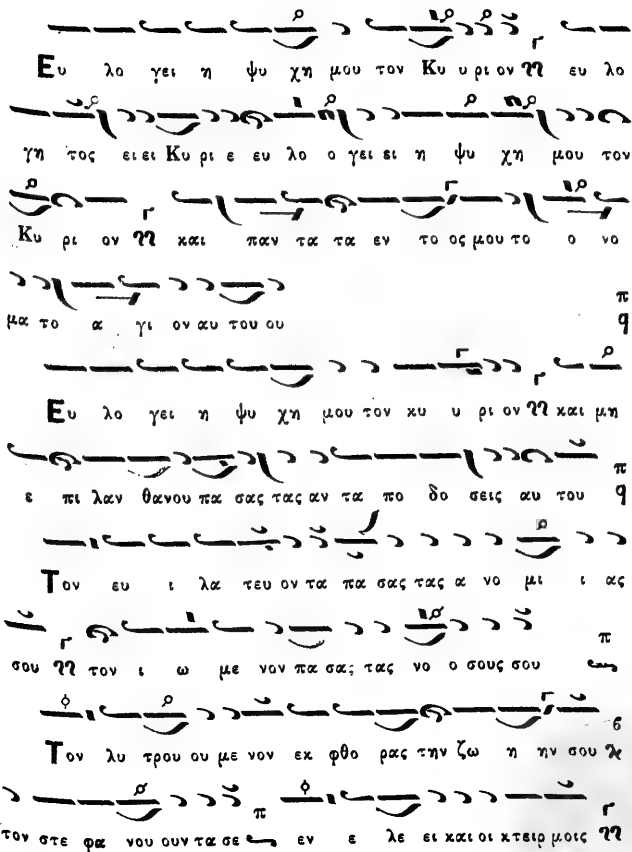 Ευ λο γει η ψυ χη μου τον Κυ υ ρι ον ευ λο
γη τος ει ει Κυ ρι ε ευ λο ο γει ει η ψυ χη μου τον
Κυ ρι ον και παν τα τα εν το ος μου το ο νο
μα το α γι ον αυ του ου
Ευ λο γει η ψυ χη μου τον κυ υ ρι ον και μη
ε πι λαν θανου πα σας τας αν τα πο δο σεις αυ του
Τον ευ ι λα τευ ον τα πα σας τας α νο μι ι ας
σου τον ι ω με νον πα σας τας νο ο σους σου
Τον λυ τρου ου με νον εκ φθο ρας την ζω η ην σου
τον στε φα νου ουν τα σε εν ε λε ει και οι κτειρ μοις